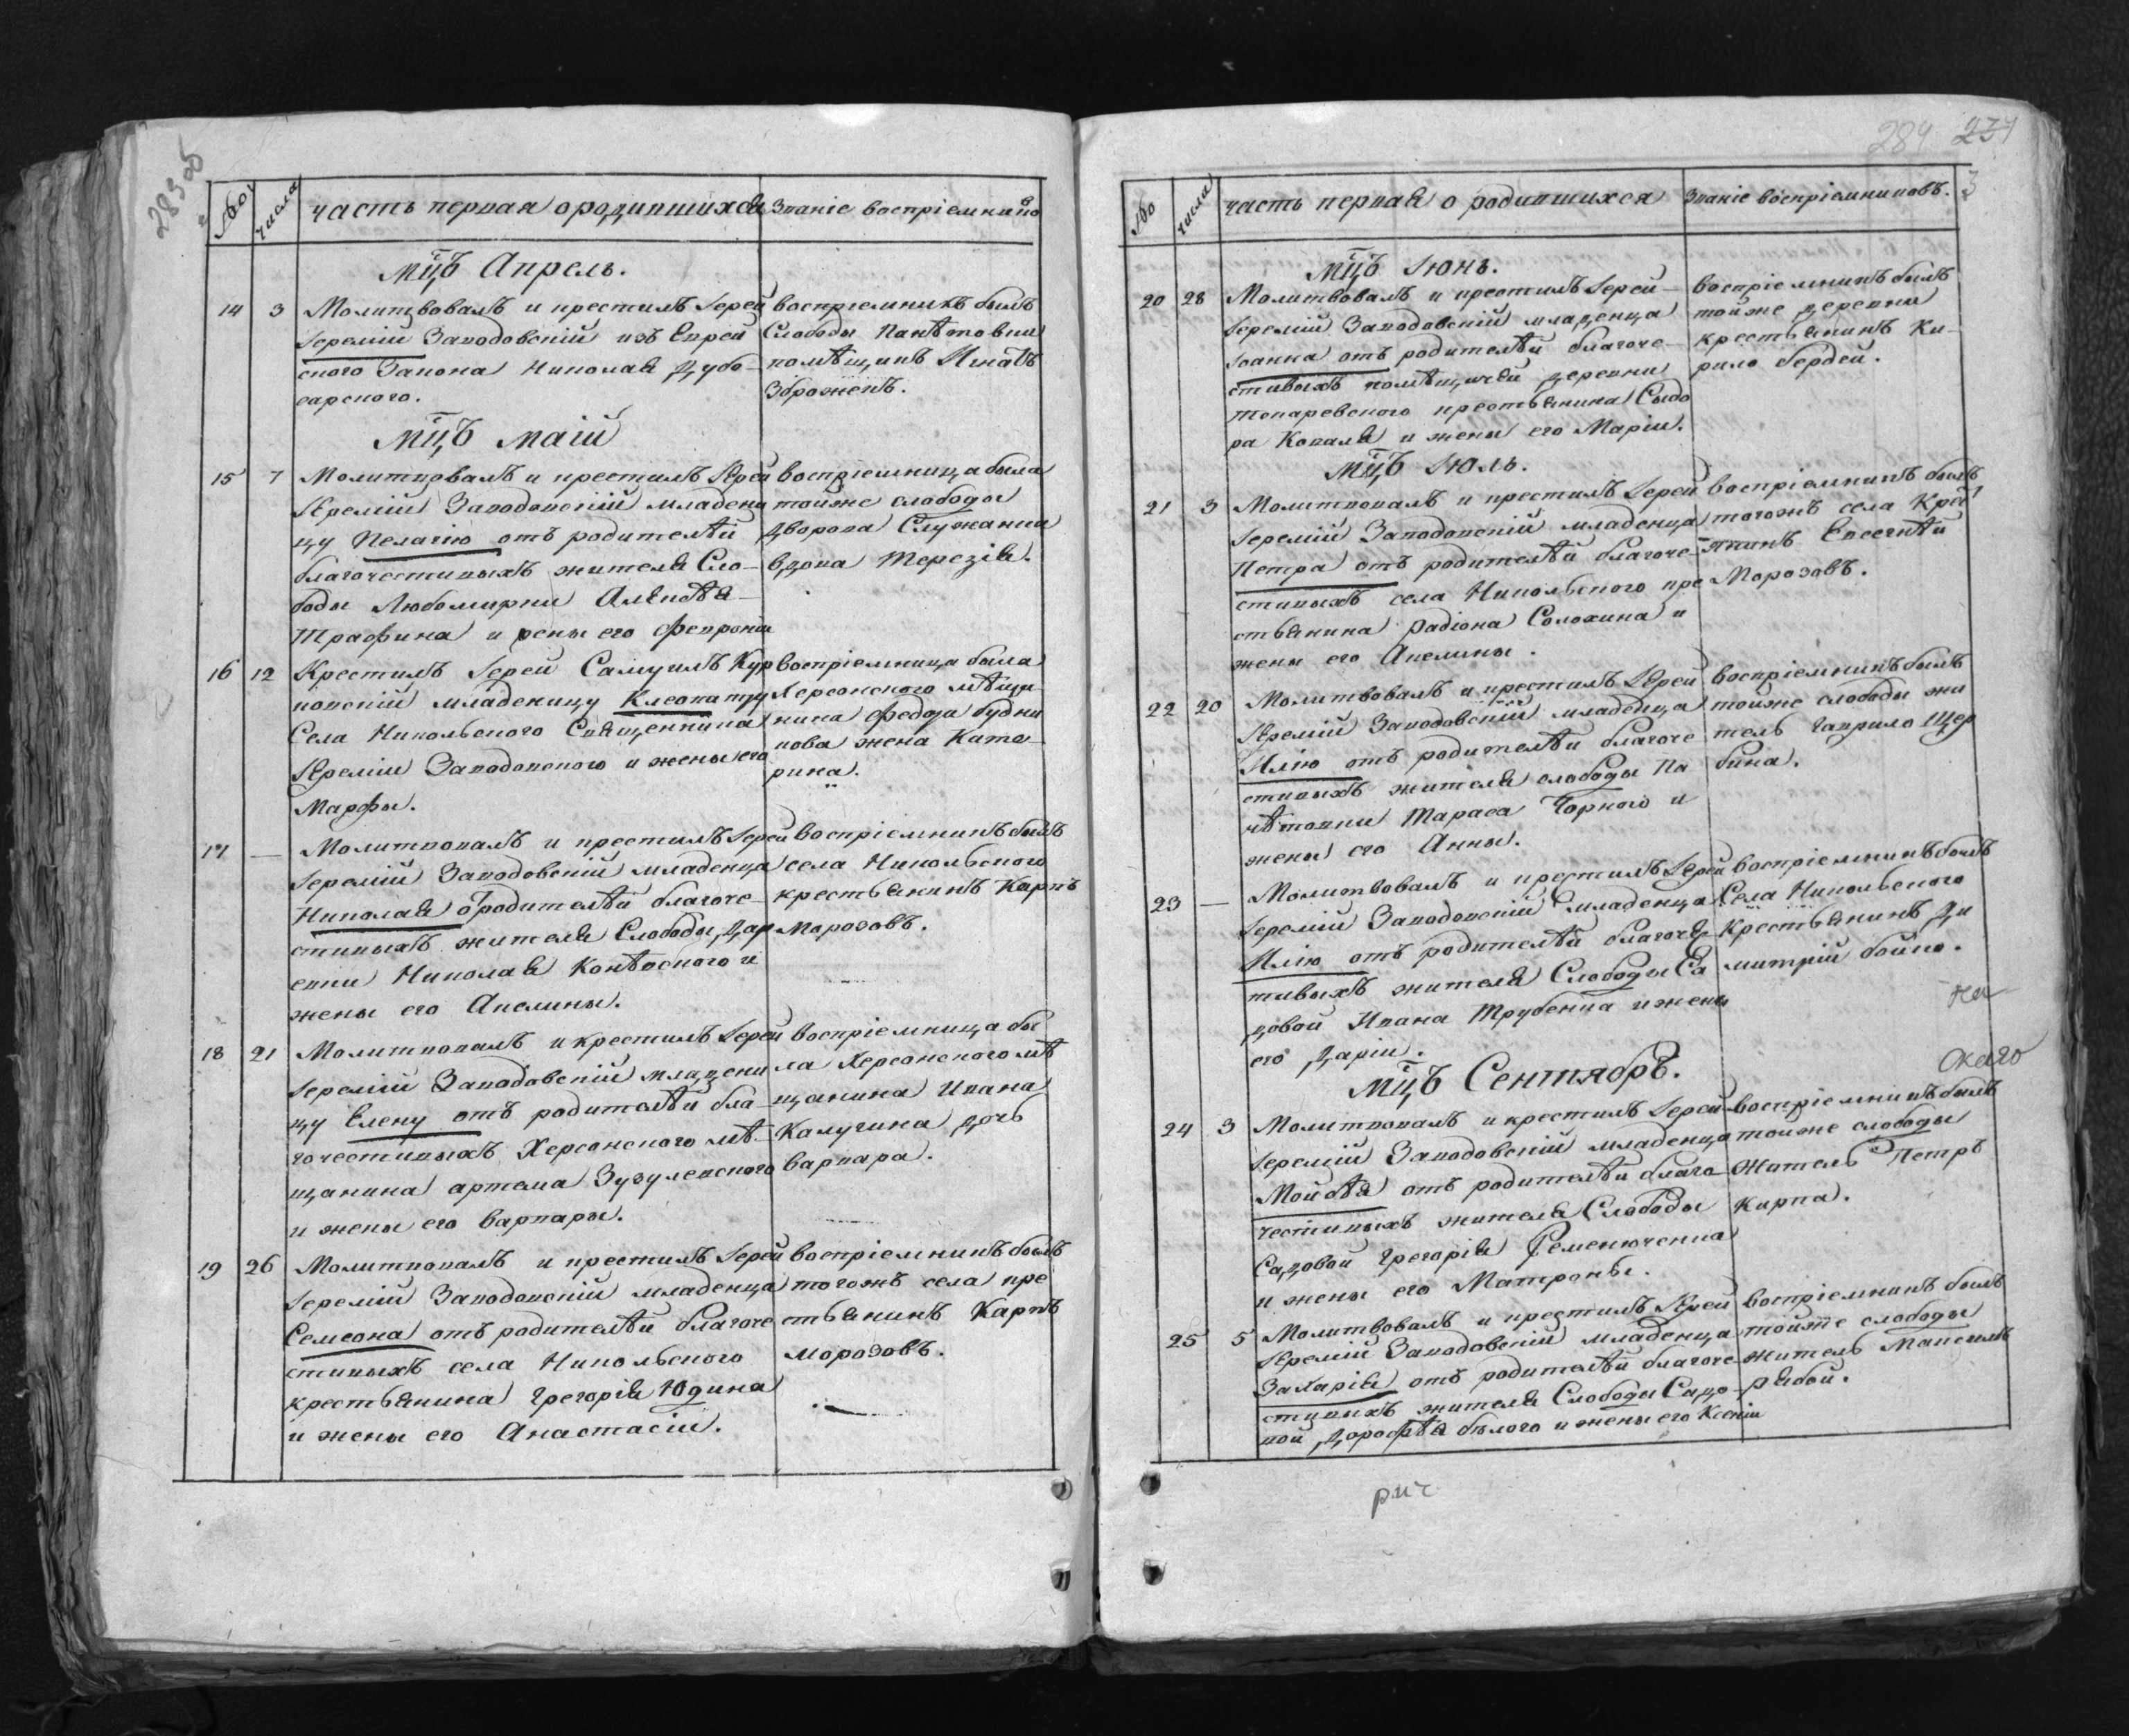 283
№
числа
часть первая о родившихся
Званіе воспріемниковъ
Мц̃ъ Апрель.
14 3 Молитвовалъ и крестилъ Іерей
Іеремій Заводовскій изъ Еврей
ского Закона Николая Дубо
сарского.
воспріемникъ былъ
Слободы Панѣтовки
помѣщикъ Игнатъ
Зброжекъ.
Мц̃ъ Маій
15 7 Молитвовалъ и крестилъ Іерей
Іеремій Заводовскій младени
цу Пелагію отъ родителѣй
благочестивыхъ жителя Сло-
боды Любомирки Алексѣя
Трафина и жены его Февроніи
воспріемница была
тойже слободы
Дворова Служанка
вдова Терезія.
16 12 Крестилъ Іерей Самуилъ Кур
ковскій младеницу Клеопатру
Села Никольского Священника
Іереміи Заводовского и жены его
Марфы.
воспріемница была
Херсонского мѣща
нина Федора Будни
кова жена Кате-
рина.
17 — Молитвовалъ и крестилъ Іерей
Іеремій Заводовскій младенца
Николая от родителѣй благоче-
стивыхъ жителя Слободы Дар
евки Николая Контѣского и
жены его Акелины.
воспріемникъ былъ
села Никольского
крестьянинъ Карпъ
Морозовъ.
18 21 Молитвовалъ и крестилъ Іерей
Іеремій Заводовскій младени
цу Елену отъ родителѣй бла-
гочестивыхъ Херсонского мѣ-
щанина артема Зузулевского
и жены его варвары.
воспріемница бы
ла Херсонского мѣ
щанина Ивана
Калугина дочь
варвара.
19 26 Молитвовалъ и крестилъ Іерей
Іеремій Заводовскій младенца
Семеона отъ родителѣй благоче
стивыхъ села Никольского
крестьянина Грегорія Юдина
и жены его Анастасіи.
воспріемникъ былъ
тогожъ села кре
стьянинъ Карпъ
Морозовъ.
284 234
№
числа
часть первая о родившихся
Званіе воспріемниковъ.
Мц̃ъ Іюнь.
20 28 Молитвовалъ и крестилъ Іерей
Іеремій Заводовскій младенца
Іоанна отъ родителѣй благоче-
стивыхъ помѣщичей деревни
Токаревского крестьянина Сыдо
ра Коваля и жены его Маріи.
воспріемникъ былъ
тойже деревни
крестьянинъ Ки-
рило бердей.
Мц̃ъ Іюль.
21 3 Молитвовалъ и крестилъ Іерей
Іеремій Заводовскій младенца
Петра отъ родителѣй благоче-
стивыхъ села Никольского кре
стьянина Радіона Солохина и
жены его Акелины.
воспріемникъ былъ
тогожъ села Кресть
янинъ Евсегнѣй
Морозовъ.
22 20 Молитвовалъ и крестилъ Іерей
Іеремій Заводовскій младенца
Илію отъ родителѣй благоче
стивыхъ жителя слободы Па
нѣтовки Тараса Чорного и
жены его Анны.
воспріемникъ былъ
тойже слободы жи
тель гаврило Щер
бина.
23 — Молитвовалъ и крестилъ Іерей
Іеремій Заводовскій младенца
Илію отъ родителѣй благоче-
тивыхъ жителя Слободы Са
довой Ивана Трубенка и жены
его Даріи.
воспріемникъ былъ
Села Никольского
Крестьянинъ Ди
митрій бойко.
Мц̃ъ Сентябрь.
24 3 Молитвовалъ и крестилъ Іерей
Іеремій Заводовскій младенца
Мойсѣя отъ родителѣй благо
честивыхъ жителя Слободы
Садовой Грегорія Ременюченка
и жены его Матроны.
воспріемникъ былъ
тойже слободы
Житель Петръ
Кирпа.
25 5 Молитвовалъ и крестилъ Іерей
Іеремій Заводовскій младенца
Захарія отъ родителѣй благоче
стивыхъ жителя Слободы Садо-
вой Дорофѣя бѣлого и жены его Ксеніи
воспріемникъ былъ
тойже слободы
житель Максимъ
рябой.